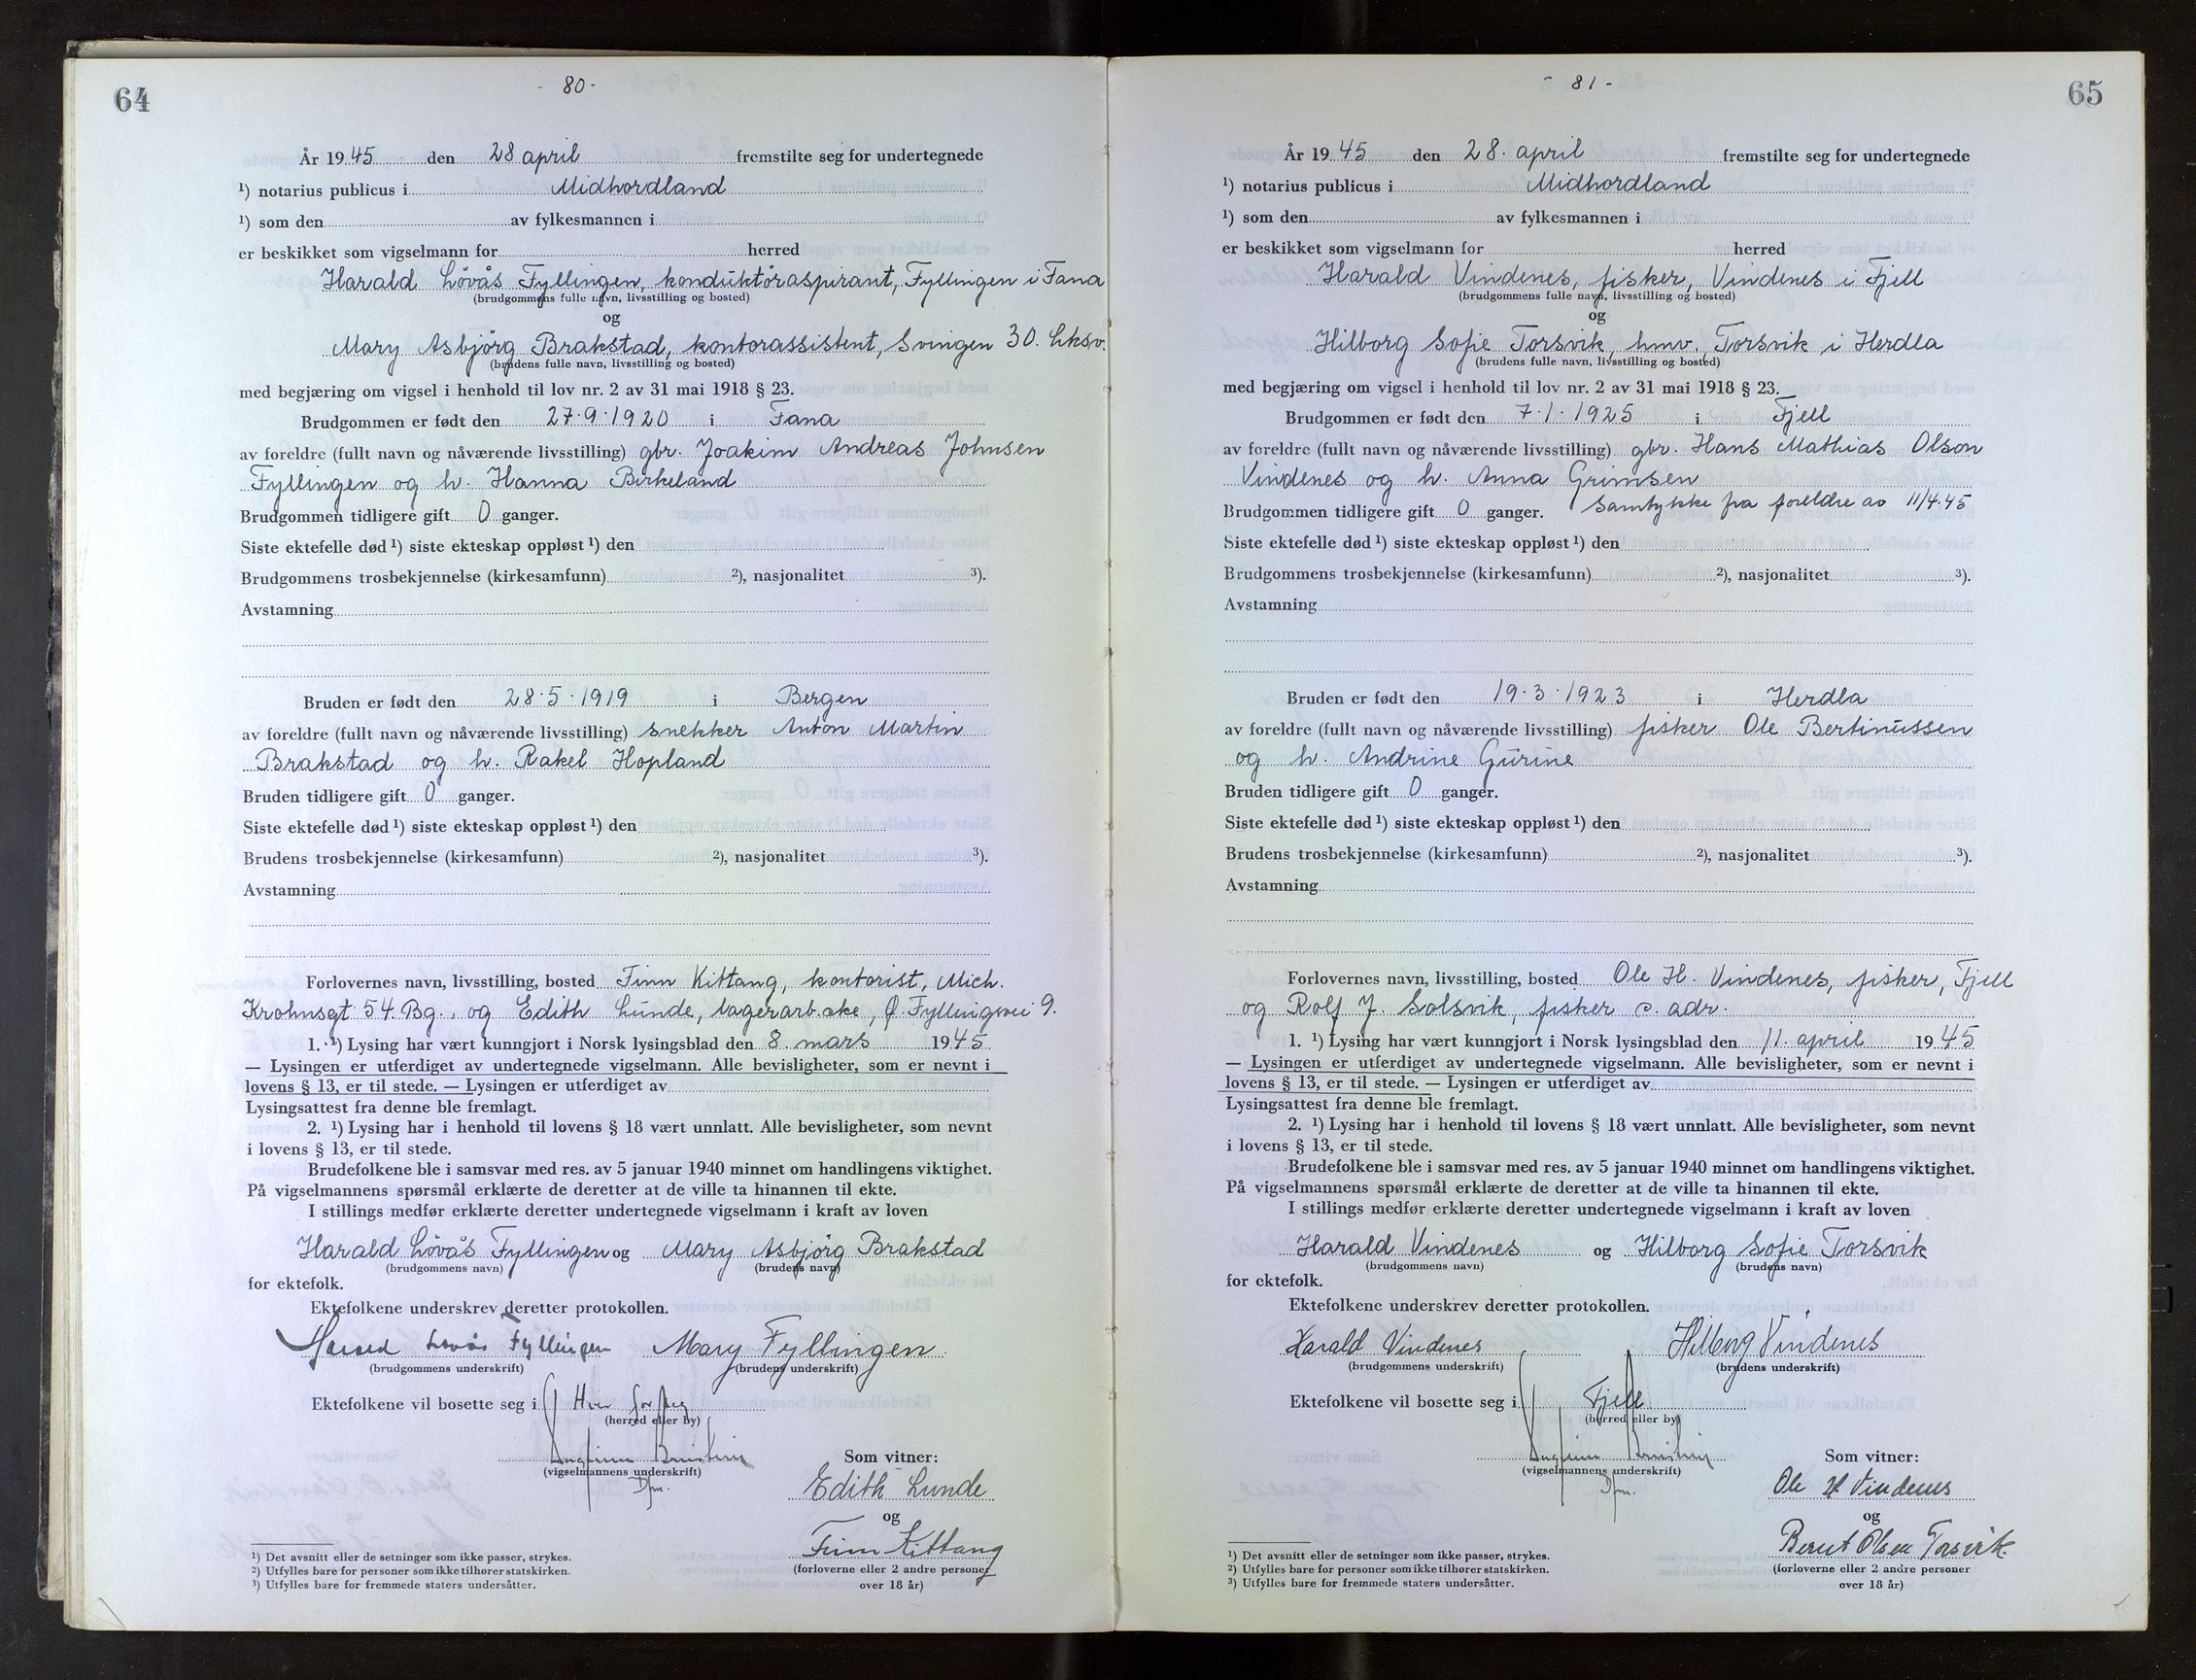 64
- 80 -
År 1945 den 28 april fremstilte seg for undertegnede
¹) notarius publicus i Midhordland
¹) som den av fylkesmannen i
er beskikket som vigselmann for herred
Harald Lövås Fyllingen, konduktöraspirant, Fyllingen i Fana
(brudgommens fulle navn, livsstilling og bosted)
og
Mary Asbjörg Brakstad, kontorassistent, Svingen 30. Lksv.
(brudens fulle navn, livsstilling og bosted)
med begjæring om vigsel i henhold til lov nr. 2 av 31 mai 1918 § 23.
Brudgommen er født den 27·9·1920 i Fana
av foreldre (fullt navn og nåværende livsstilling) gbr. Joakim Andreas Johnsen
Fyllingen og h. Hanna Birkeland
Brudgommen tidligere gift 0 ganger.
Siste ektefelle død ¹) siste ekteskap oppløst ¹) den
Brudgommens trosbekjennelse (kirkesamfunn) ²), nasjonalitet ³).
Avstamning
Bruden er født den 28·5·1919 i Bergen
av foreldre (fullt navn og nåværende livsstilling) snekker Anton Martin
Brakstad og h. Rakel Hopland
Bruden tidligere gift 0 ganger.
Siste ektefelle død ¹) siste ekteskap oppløst ¹) den
Brudens trosbekjennelse (kirkesamfunn) ²), nasjonalitet ³).
Avstamning
Forlovernes navn, livsstilling, bosted Finn Kittang, kontorist, Mich.
Krohnsgt 54. Bg., og Edith Lunde, lagerarb.ske, Ø. Fyllingvei 9.
1. ¹) Lysing har vært kunngjort i Norsk lysingsblad den 8. mars 1945
— Lysingen er utferdiget av undertegnede vigselmann. Alle bevisligheter, som er nevnt i
lovens § 13, er til stede. — Lysingen er utferdiget av
Lysingsattest fra denne ble fremlagt.
2. ¹) Lysing har i henhold til lovens § 18 vært unnlatt. Alle bevisligheter, som nevnt
i lovens § 13, er til stede.
Brudefolkene ble i samsvar med res. av 5 januar 1940 minnet om handlingens viktighet.
På vigselmannens spørsmål erklærte de deretter at de ville ta hinannen til ekte.
I stillings medfør erklærte deretter undertegnede vigselmann i kraft av loven
Harald Lövås Fyllingen og Mary Asbjörg Brakstad
(brudgommens navn) (brudens navn)
for ektefolk.
Ektefolkene underskrev deretter protokollen.
Harald Lövås Fyllingen Mary Fyllingen
(brudgommens underskrift) (brudens underskrift)
Ektefolkene vil bosette seg i Hver for seg
(herred eller by)
(vigselmannens underskrift)
Dfm.
Som vitner:
Edith Lunde
og
Finn Kittang
(forloverne eller 2 andre personer
over 18 år)
¹) Det avsnitt eller de setninger som ikke passer, strykes.
²) Utfylles bare for personer som ikke tilhører statskirken.
³) Utfylles bare for fremmede staters undersåtter.
65
- 81 -
År 1945 den 28. april fremstilte seg for undertegnede
¹) notarius publicus i Midhordland
¹) som den av fylkesmannen i
er beskikket som vigselmann for herred
Harald Vindenes, fisker, Vindenes i Fjell
(brudgommens fulle navn, livsstilling og bosted)
og
Hilborg Sofie Torsvik, hmv., Torsvik i Herdla
(brudens fulle navn, livsstilling og bosted)
med begjæring om vigsel i henhold til lov nr. 2 av 31 mai 1918 § 23.
Brudgommen er født den 7·1·1925 i Fjell
av foreldre (fullt navn og nåværende livsstilling) gbr. Hans Mathias Olson
Vindenes og h. Anna Grimsen
Brudgommen tidligere gift 0 ganger. Samtykke fra foreldre av 11/4·45
Siste ektefelle død ¹) siste ekteskap oppløst ¹) den
Brudgommens trosbekjennelse (kirkesamfunn) ²), nasjonalitet ³).
Avstamning
Bruden er født den 19·3·1923 i Herdla
av foreldre (fullt navn og nåværende livsstilling) fisker Ole Bertinussen
og h. Andrine Gurine
Bruden tidligere gift 0 ganger.
Siste ektefelle død ¹) siste ekteskap oppløst ¹) den
Brudens trosbekjennelse (kirkesamfunn) ²), nasjonalitet ³).
Avstamning
Forlovernes navn, livsstilling, bosted Ole H. Vindenes, fisker, Fjell
og Rolf J. Solsvik, fisker s. adr.
1. ¹) Lysing har vært kunngjort i Norsk lysingsblad den 11. april 1945
— Lysingen er utferdiget av undertegnede vigselmann. Alle bevisligheter, som er nevnt i
lovens § 13, er til stede. — Lysingen er utferdiget av
Lysingsattest fra denne ble fremlagt.
2. ¹) Lysing har i henhold til lovens § 18 vært unnlatt. Alle bevisligheter, som nevnt
i lovens § 13, er til stede.
Brudefolkene ble i samsvar med res. av 5 januar 1940 minnet om handlingens viktighet.
På vigselmannens spørsmål erklærte de deretter at de ville ta hinannen til ekte.
I stillings medfør erklærte deretter undertegnede vigselmann i kraft av loven
Harald Vindenes og Hilborg Sofie Torsvik
(brudgommens navn) (brudens navn)
for ektefolk.
Ektefolkene underskrev deretter protokollen.
Harald Vindenes Hilborg Vindenes
(brudgommens underskrift) (brudens underskrift)
Ektefolkene vil bosette seg i Fjell
(herred eller by)
(vigselmannens underskrift)
Dfm.
Som vitner:
Ole H Vindenes
og
Berut Olsen Torsvik
(forloverne eller 2 andre personer
over 18 år)
¹) Det avsnitt eller de setninger som ikke passer, strykes.
²) Utfylles bare for personer som ikke tilhører statskirken.
³) Utfylles bare for fremmede staters undersåtter.